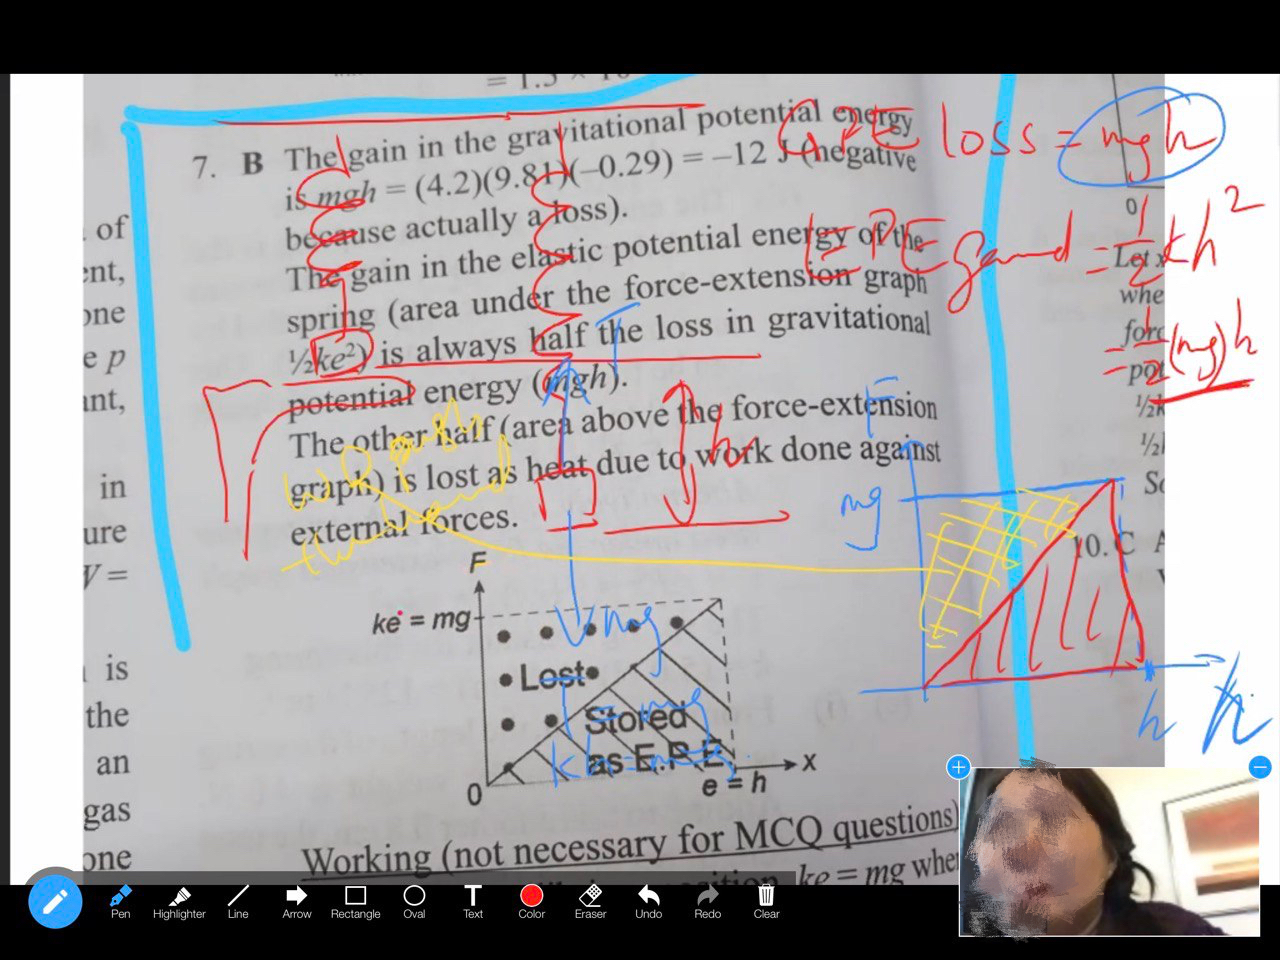 = 1.5 × 10
7. B The gain in the gravitational potential energy
is mgh = (4.2)(9.81)(−0.29) = −12 J (negative
because actually a loss).
The gain in the elastic potential energy of the
spring (area under the force-extension graph
½ke²) is always half the loss in gravitational
potential energy (mgh).
The other half (area above the force-extension
graph) is lost as heat due to work done against
external forces.
F
ke = mg
Lost
Stored
as E.P.E.
0
e = h
x
Working (not necessary for MCQ questions)
ke = mg whe
of
ent,
one
e p
ant,
in
ure
V =
is
the
an
gas
one
GPE loss = mgh
EPE gained = ½kh²
= ½(mg)h
T
h
mg
F
mg
h
kh = mg
WD by
hand
0
Let x
whe
forc
pot
½k
½k
So
10. C A
Pen
Highlighter
Line
Arrow
Rectangle
Oval
Text
Color
Eraser
Undo
Redo
Clear